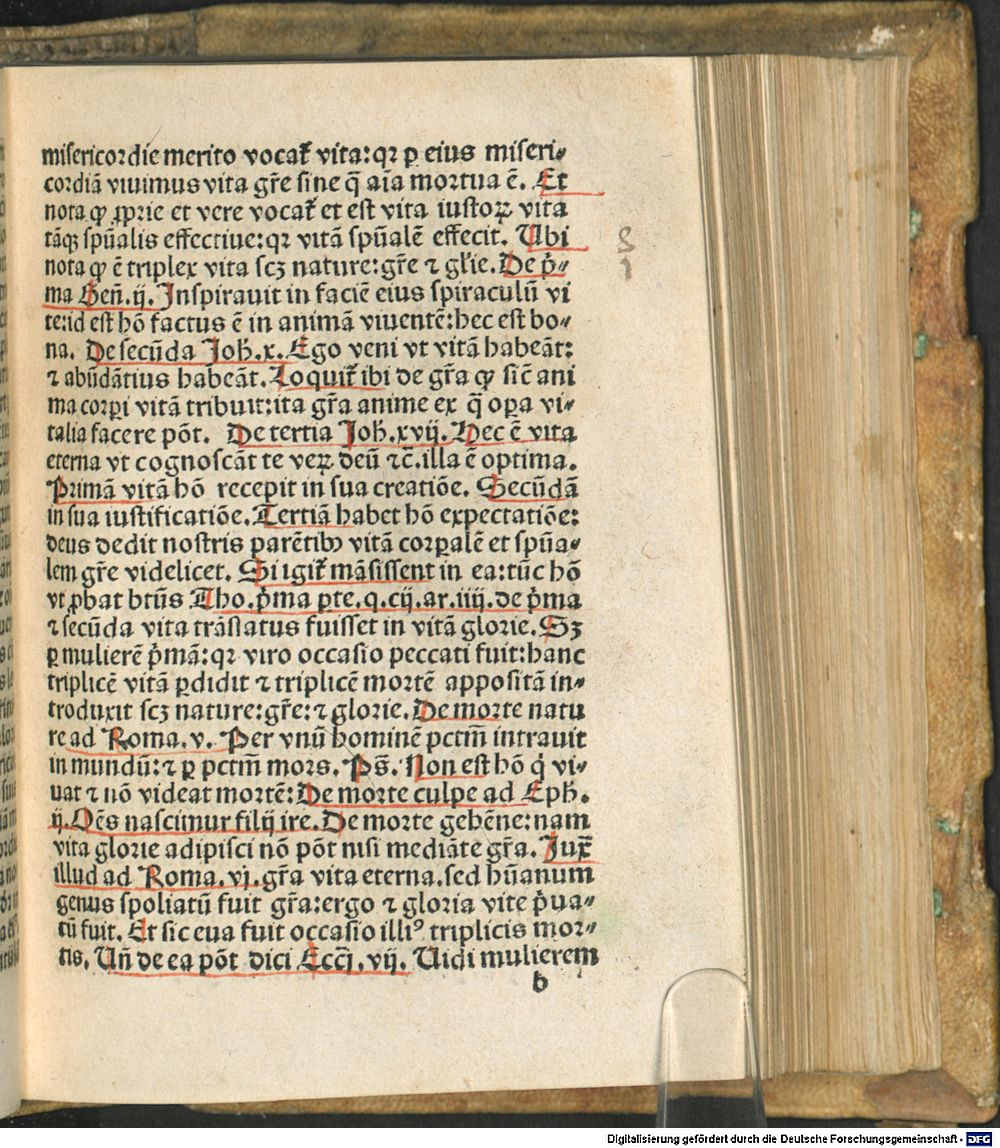 misericordie merito vocat᷑ vita:qꝛ ꝑ eius miseri⸗
cordiā viuimus vita gr̄e sine q̄ aīa mortua ē. Et
nota ꝙ ꝓprie et vere vocat᷑ et est vita iustoꝝ vita
tāqꝫ spūalis effectiue:qꝛ vitā spūalē effecit. Ubi
nota ꝙ ē triplex vita scꝫ nature:gr̄e ⁊ glīe. De p̄⸗
ma Geñ.ij. Inspirauit in faciē eius spiraculū vi
te:id est hō factus ē in animā viuentē:hec est bo⸗
na. De secūda Joh̄.x. Ego veni vt vitā habeāt:
⁊ abūdātius habeāt. Loquit᷑ ibi de gr̄a ꝙ sic̄ ani
ma corꝑi vitā tribuit:ita gr̄a anime ex q̄ oꝑa vi⸗
talia facere pōt. De tertia Joh̄.xvij. Hec ē vita
eterna vt cognoscāt te veꝝ deū ⁊c̄.illa ē optima.
Primā vitā hō recepit in sua creatiōe. Secūdā
in sua iustificatiōe. Tertiā habet hō expectatiōe:
deus dedit nostris parētibꝰ vitā corꝑalē et spūa⸗
lem gr̄e videlicet. Si igit᷑ māsissent in ea:tūc hō
vt ꝓbat btūs Tho.p̄ma ꝑte.q.cij.ar.iiij.de p̄ma
⁊ secūda vita trāslatus fuisset in vitā glorie. Sꝫ
ꝑ mulierē p̄mā:qꝛ viro occasio peccati fuit:hanc
triplicē vitā ꝑdidit ⁊ triplicē mortē appositā in⸗
troduxit scꝫ nature:gr̄e:⁊ glorie. De morte natu
re ad Roma.v. Per vnū hominē pctm̄ intrauit
in mundū:⁊ ꝑ pctm̄ mors. Ps̄. Non est hō q̇ vi⸗
uat ⁊ nō videat mortē: De morte culpe ad Eph.
ij. Oēs nascimur filij ire. De morte gehēne:nam
vita glorie adipisci nō pōt nisi mediāte gr̄a. Jux̄
illud ad Roma.vj.gr̄a vita eterna.sed hūanum
genus spoliatū fuit gr̄a:ergo ⁊ gloria vite p̄ua⸗
tū fuit. Et sic eua fuit occasio illiꝰ triplicis mor⸗
tis. Uñ de ea pōt dici Ecci̅.vij. Uidi mulierem
b
8
1
Digitalisierung gefördert durch die Deutsche Forschungsgemeinschaft - DFG